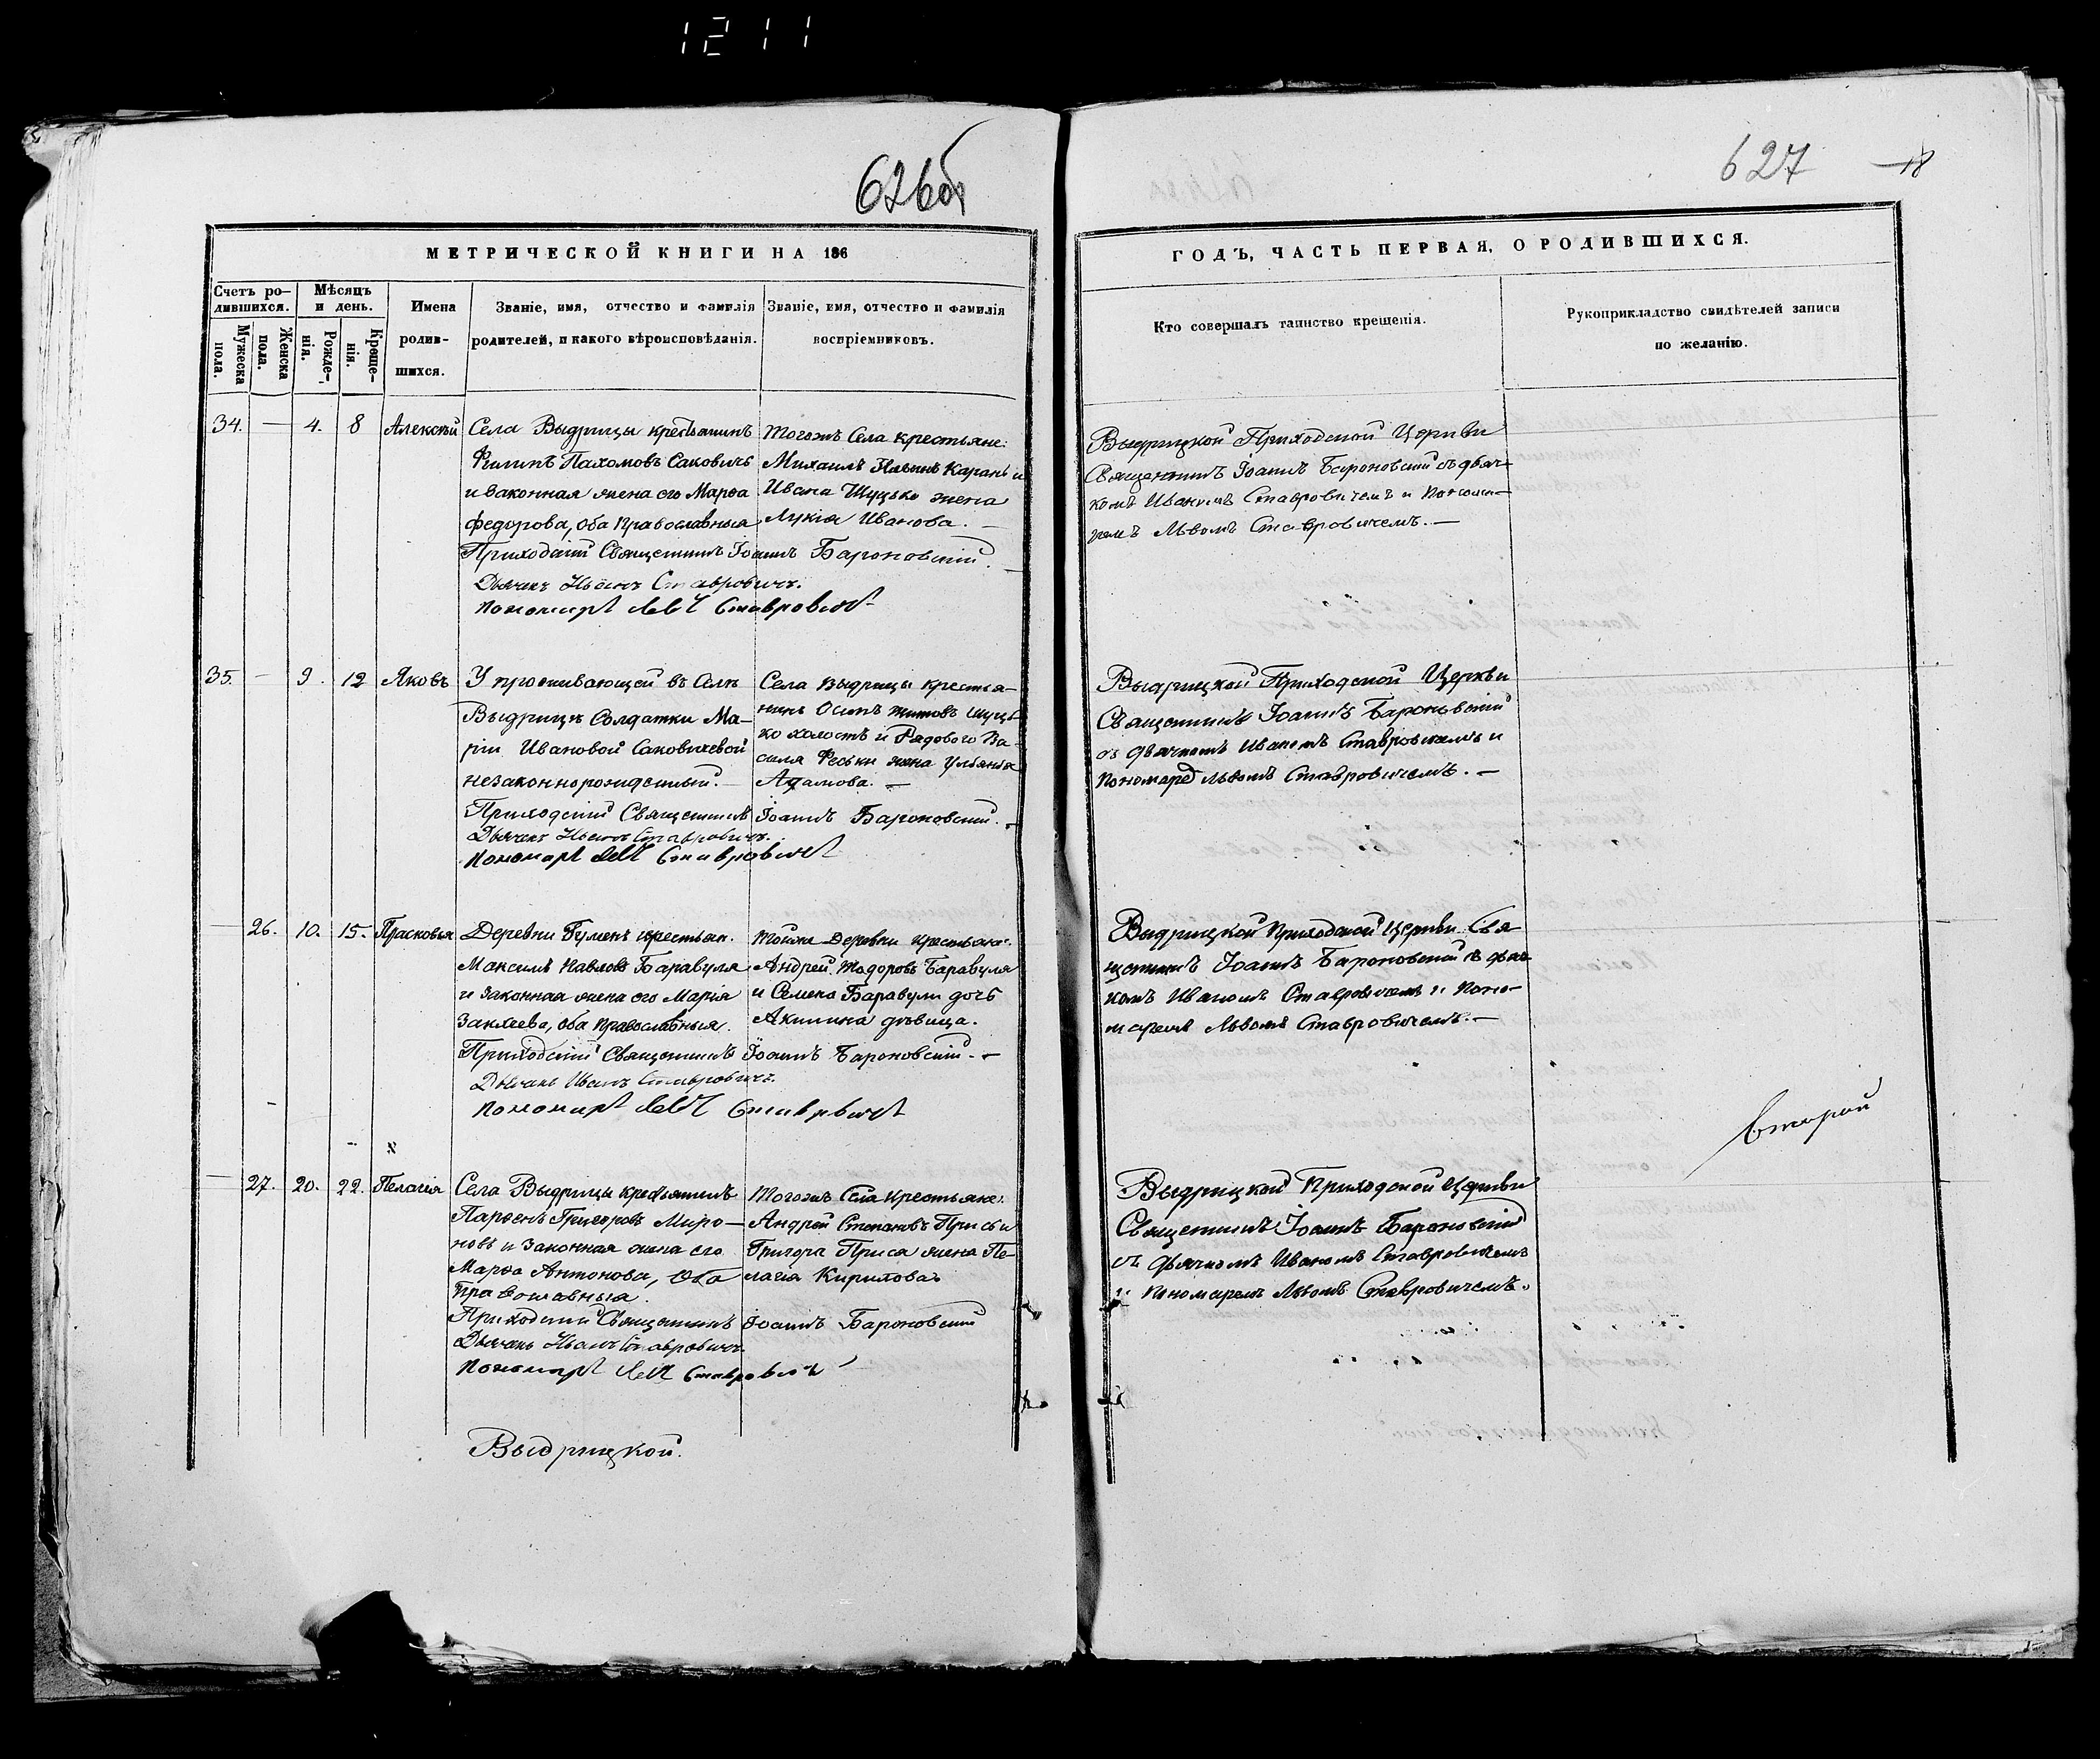 1211
626об
МЕТРИЧЕСКОЙ КНИГИ НА 186
Счетъ ро-
дившихся.
Мужеска
пола.
Женска
пола.
Мѣсяцъ
и день.
Рожде-
нія.
Креще-
нія.
Имена
родив-
шихся.
Званіе, имя, отчество и фамилія
родителей, и какого вѣроисповѣданія.
Званіе, имя, отчество и фамилія
воспріемниковъ.
34. — 4. 8 Алексѣй
Села Выдрицы крестьянинъ
Филипъ Пахомовъ Саковичъ
и законная жена его Марѳа
Федорова, оба православныя
Тогожъ Села крестьяне:
Михаилъ Карань и
Ивана Шуцько жена
Лукія Иванова. —
Приходскій Священникъ Іоаннъ Бароновскій. —
Дьячекъ Иванъ Ставровичъ.
Пономарь Левъ Ставровичъ
35. — 9. 12 Яковъ
У проживающей въ Селѣ
Выдрицѣ Солдатки Ма-
ріи Ивановой Саковичевой
незаконнорожденный. —
Села Выдрицы крестья-
нинъ Осипъ Шуць-
ко холостъ и Рядового Ва-
силя Феськи жена Ульянія
Адамова. —
Приходскій Священникъ Іоаннъ Бароновскій. —
Дьячекъ Иванъ Ставровичъ.
Пономарь Левъ Ставровичъ
— 26. 10. 15. Прасковья
Деревни Гуменъ крестьян.
Максимъ Павловъ Баравуля
и законная жена его Марія
оба православныя.
Тойже Деревни крестьяне:
Андрей Тодоровъ Баравуля
и Семена Баравули дочь
Акилина дѣвица.
Приходскій Священникъ Іоаннъ Бароновскій. —
Дьячекъ Иванъ Ставровичъ.
Пономарь Левъ Ставровичъ
— 27. 20. 22. Пелагія
Села Выдрицы крестьянинъ
Парѳенъ Григоровъ Миро-
новъ и законная жена его
Марѳа Антонова, Оба
православныя.
Тогожъ Села крестьяне:
Андрей Степановъ Прись и
Григора Приса жена Пе-
лагія Кирилова
Приходскій Священникъ Іоаннъ Бароновскій
Дьячекъ Иванъ Ставровичъ
Пономарь Левъ Ставровичъ
Выдрицкой.
627
18
ГОДЪ, ЧАСТЬ ПЕРВАЯ, О РОДИВШИХСЯ.
Кто совершалъ таинство крещенія.
Рукоприкладство свидѣтелей записи
по желанію.
Выдрицкой Приходской Церкви
Священникъ Іоаннъ Бароновскій съ дьяч-
комъ Иваномъ Ставровичемъ и Понома-
ремъ Львомъ Ставровичемъ. —
Выдрицкой Приходской Церкви
Священникъ Іоаннъ Бароновскій
съ дьячкомъ Иваномъ Ставровичемъ и
Пономаремъ Львомъ Ставровичемъ. —
Выдрицкой Приходской Церкви Свя-
щенникъ Іоаннъ Бароновскій съ дьяч-
комъ Иваномъ Ставровичемъ и Поно-
маремъ Львомъ Ставровичемъ. —
Второй
Выдрицкой Приходской Церкви
Священникъ Іоаннъ Бароновскій
съ дьячкомъ Иваномъ Ставровичемъ
и Пономаремъ Львомъ Ставровичемъ.